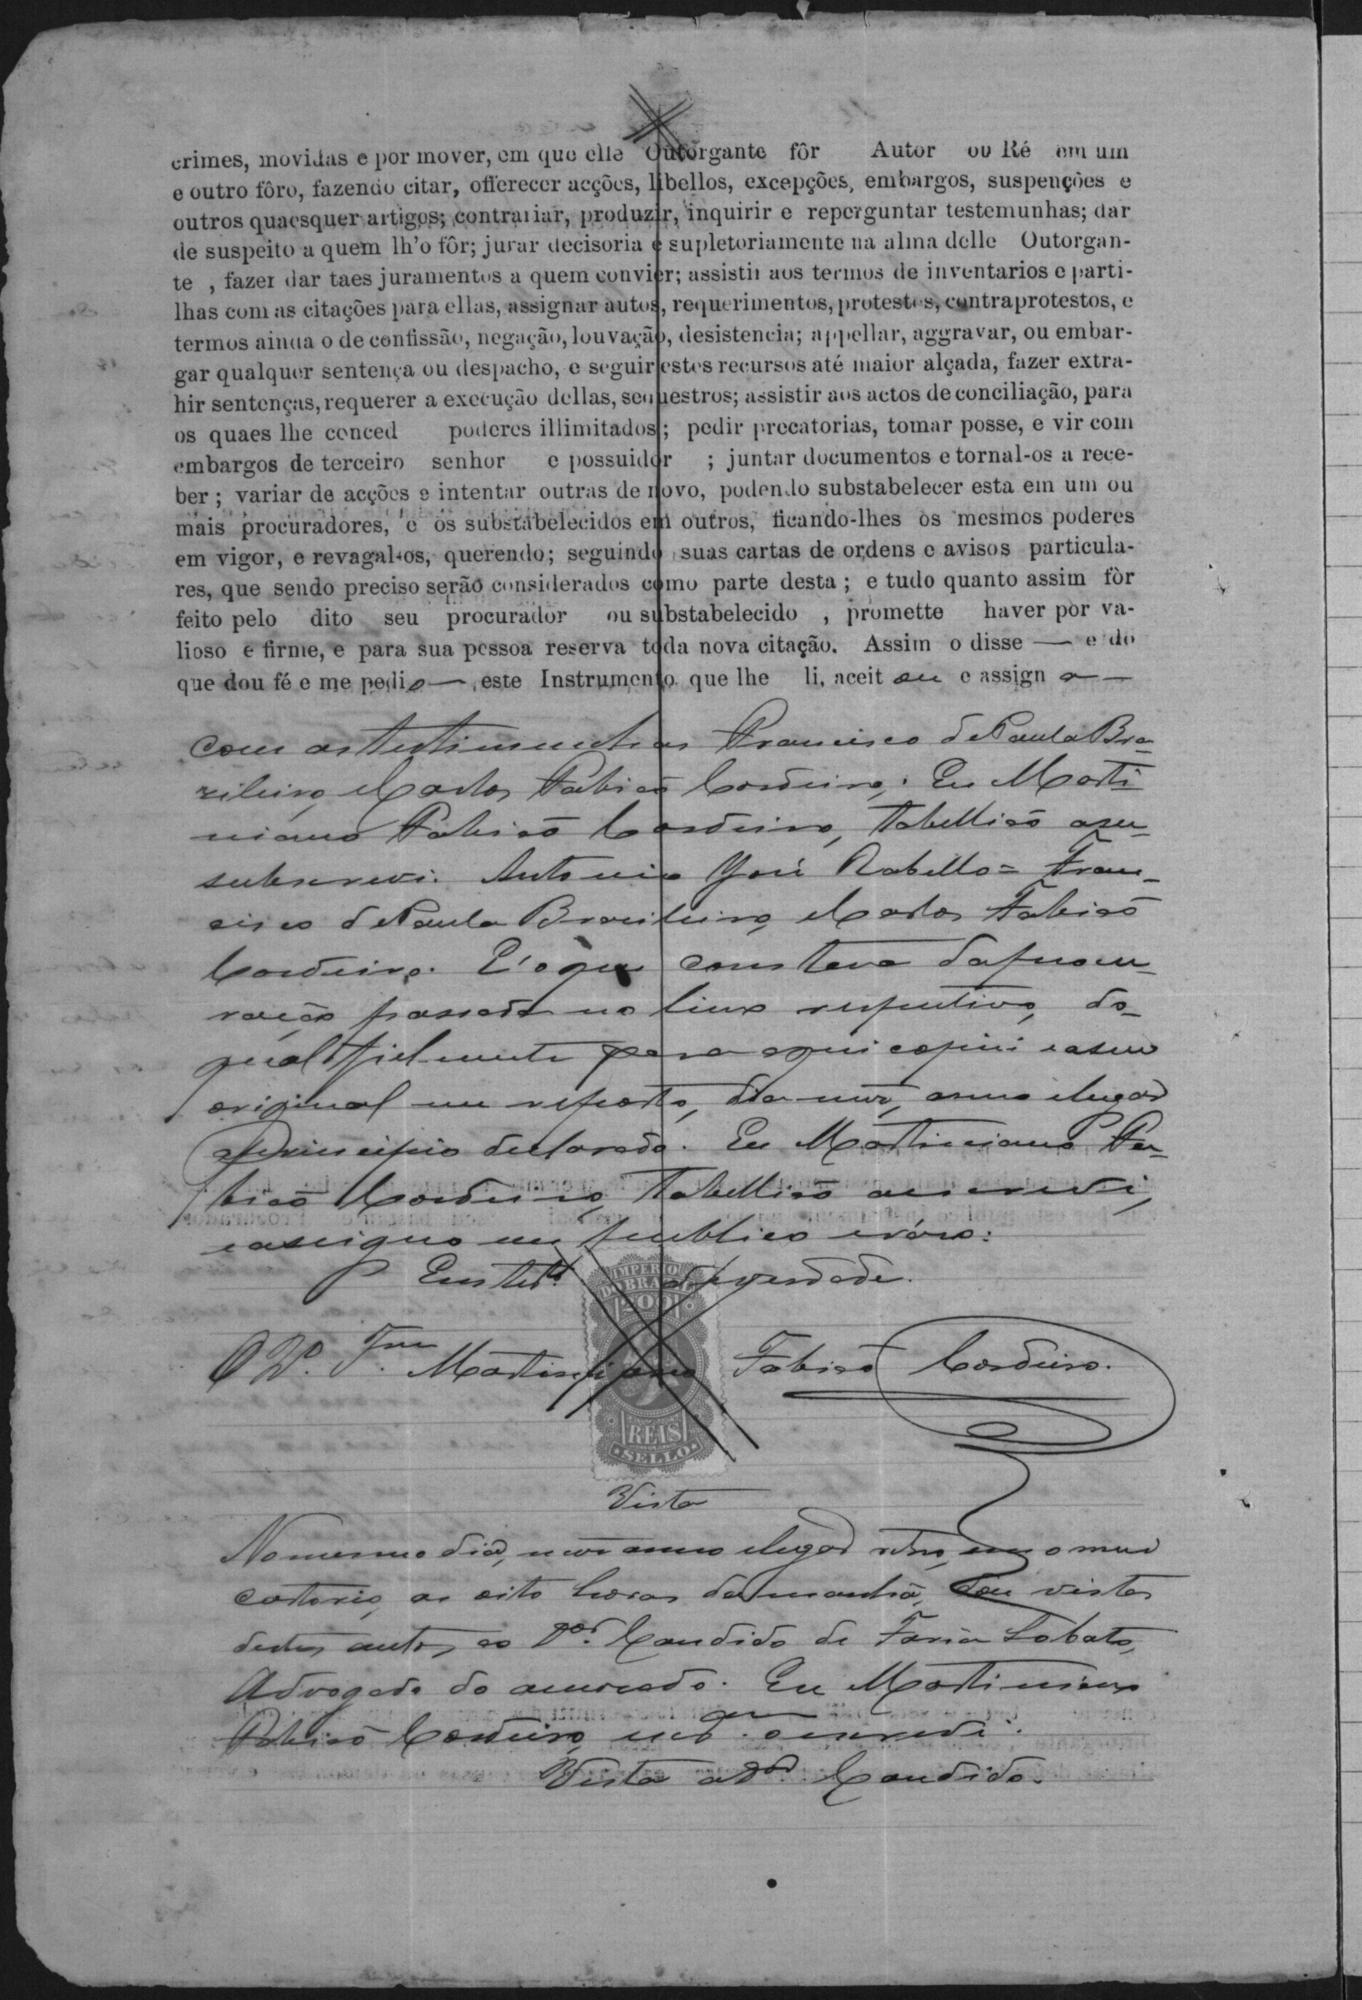 crimes, movidas e por mover, em que elle Outorgante fôr Autor ou Ré em um
e outro fôro, fazendo citar, offerecer acções, libellos, excepções, embargos, suspenções e
outros quaesquer artigos; contrariar, produzir, inquirir e reperguntar testemunhas; dar
de suspeito a quem lh'o fôr; jurar decisoria e supletoriamente na alma delle Outorgan-
te , fazer dar taes juramentos a quem convier; assistir aos termos de inventarios e parti-
lhas com as citações para ellas, assignar autos, requerimentos, protestos, contraprotestos, e
termos ainda o de confissão, negação, louvação, desistencia; appellar, aggravar, ou embar-
gar qualquer sentença ou despacho, e seguir estes recursos até maior alçada, fazer extra-
hir sentenças, requerer a execução dellas, sequestros; assistir aos actos de conciliação, para
os quaes lhe conced poderes illimitados; pedir precatorias, tomar posse, e vir com
embargos de terceiro senhor e possuidor ; juntar documentos e tornal-os a rece-
ber; variar de acções e intentar outras de novo, podendo substabelecer esta em um ou
mais procuradores, e os substabelecidos em outros, ficando-lhes os mesmos poderes
em vigor, e revagal-os, querendo; seguindo suas cartas de ordens e avisos particula-
res, que sendo preciso serão considerados como parte desta; e tudo quanto assim fòr
feito pelo dito seu procurador ou substabelecido , promette haver por va-
lioso e firme, e para sua pessoa reserva toda nova citação. Assim o disse — e do
que dou fé e me pedio — este Instrumento que lhe li, aceitou e assigna —
com as testimunhas Francisco de Paula Bra-
zileiro, e Carlos Fabião Cordeiro; Eu Marti-
niano Fabião Cordeiro, Tabellião a su-
subscrevi. Antonio José Rabello = Fran-
cisco de Paula Brasileiro, e Carlos Fabião
Cordeiro. E' o que constava da procu-
ração passada no livro respectivo, do
qual fielmente para aqui copiei e a seu
original me reporto, dia mez, anno e lugar
a principio declarado. Eu Martiniano Fa-
bião Cordeiro, Tabellião o escrevi,
e assigno em publico e raso:
Em test.º de verdade.
IMPERIO
DO BRAZIL
200
O Martiniano Fabião Cordeiro.
REIS
SELLO
Vista
No mesmo dia, mez anno e lugar retro, em o meu
cartorio, as oito horas da manhã, dou vista
destes autos ao D.or Candido de Faria Lobato,
Advogado do accusado. Eu Martiniano
Fabião Cordeiro, que o escrevi.
Vista ao D.or Candido.